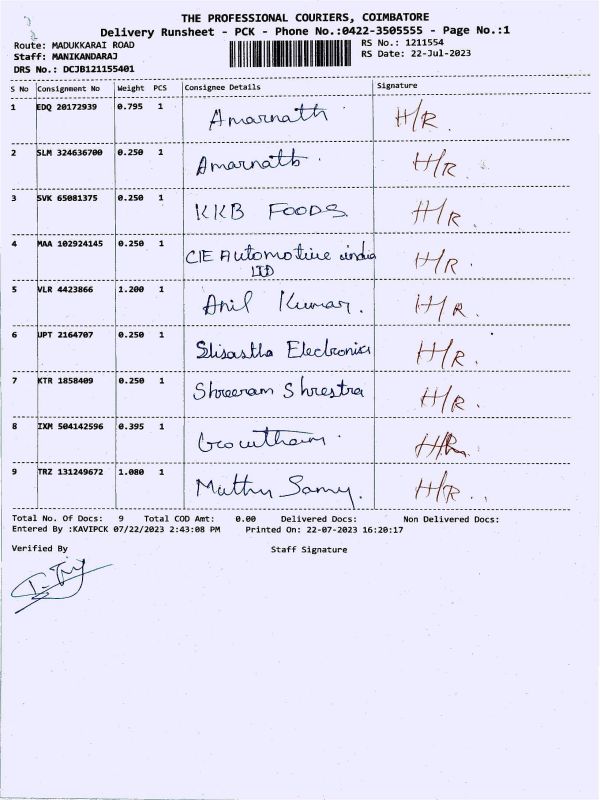 THE PROFESSIONAL COURIERS, COIMBATORE
Delivery Runsheet - PCK - Phone No.:0422-3505555 - Page No.:1
Route: MADUKKARAI ROAD
RS No.: 1211554
Staff: MANIKANDARAJ
RS Date: 22-Jul-2023
DRS No.: DCJB121155401
S No Consignment No Weight PCS Consignee Details Signature
1 EDQ 20172939 0.795 1 Amarnath H/R.
2 SLM 324636700 0.250 1 Amarnath. H/R.
3 SVK 65081375 0.250 1 KKB FOODS H/R.
4 MAA 102924145 0.250 1 CIE Automotive india H/R.
LTD
5 VLR 4423866 1.200 1 Anil Kumar. H/R.
6 UPT 2164707 0.250 1 Electronics H/R.
7 KTR 1858409 0.250 1 Shreeram Shrestra H/R.
8 IXM 504142596 0.395 1 Gowtham. H/R
9 TRZ 131249672 1.080 1 Muthu Samy. H/R..
Total No. Of Docs: 9 Total COD Amt: 0.00 Delivered Docs: Non Delivered Docs:
Entered By :KAVIPCK 07/22/2023 2:43:08 PM Printed On: 22-07-2023 16:20:17
Verified By Staff Signature